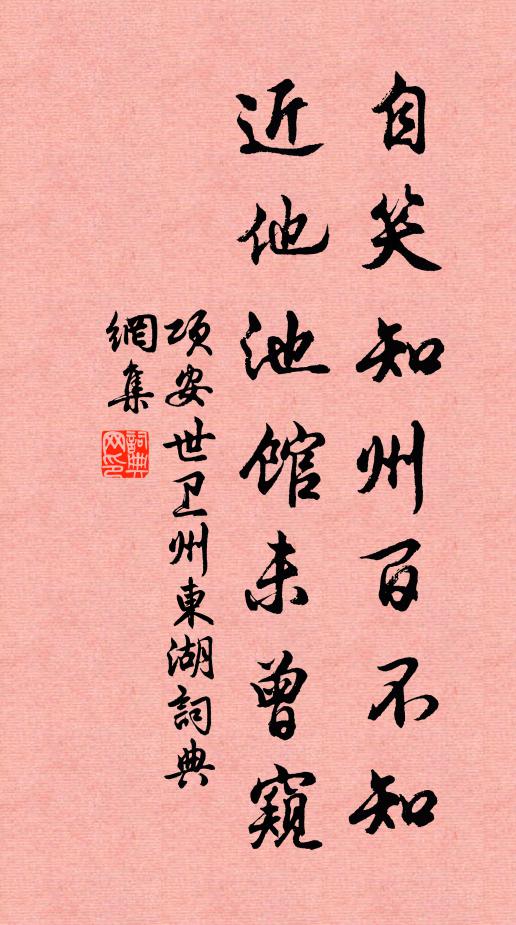 自笑知州百不知
近他池館未曾窺
项安世卫州東湖詞典
網集
詞典
网印